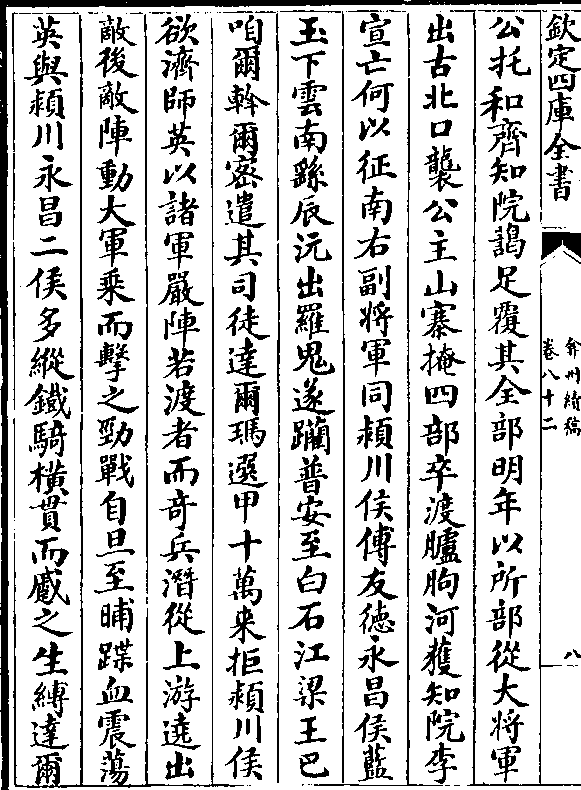 欽定四庫全書
弇州續稿
卷八十二
八
公托和齊知院謁足覆其全部明年以所部從大將軍
出古北口襲公主山寨掩四部卒渡臚朐河獲知院李
宣亡何以征南右副將軍同潁川侯傅友德永昌侯藍
玉下雲南繇辰沅出羅鬼遂躪普安至白石江梁王巴
咱爾斡爾密遣其司徒達爾瑪選甲十萬来拒潁川侯
欲濟師英以諸軍嚴陣若渡者而奇兵潛從上游遶出
敵後敵陣動大軍乗而擊之勁戰自旦至晡蹀血震蕩
英與潁川永昌二侯多縱鐵騎横貫而蹙之生縳達爾